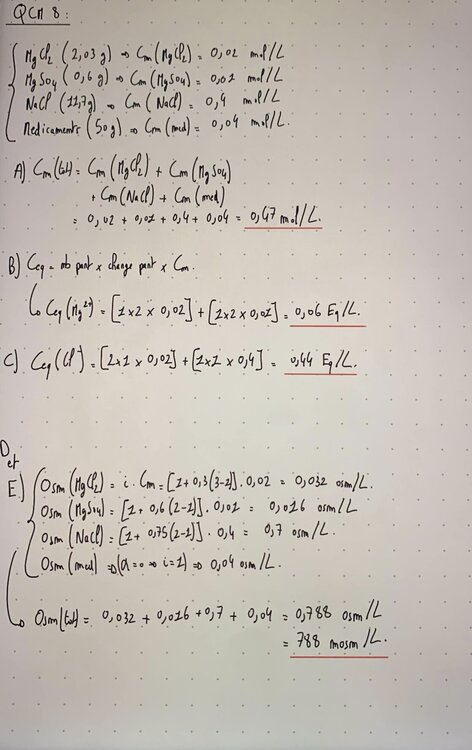 QCM 8 :
MgCl₂ (2,03 g) ⇒ Cm (MgCl₂) = 0,02 mol/L
MgSO₄ (0,6 g) ⇒ Cm (MgSO₄) = 0,01 mol/L
NaCl (11,7g) ⇒ Cm (NaCl) = 0,4 mol/L
Medicaments (50g) ⇒ Cm (med) = 0,04 mol/L.
A) Cm (tot) = Cm (MgCl₂) + Cm (MgSO₄)
+ Cm (NaCl) + Cm (med)
= 0,02 + 0,01 + 0,4 + 0,04 = 0,47 mol/L.
B) Ceq = nb part x charge part x Cm.
↳ Ceq (Mg²⁺) = [1x2 x 0,02] + [1x2 x 0,01] = 0,06 Eq/L.
C) Ceq (Cl⁻) = [2x1 x 0,02] + [1x1 x 0,4] = 0,44 Eq/L.
D et
E.) Osm (MgCl₂) = i . Cm = [1 + 0,3 (3-1)] . 0,02 = 0,032 osm/L.
Osm (MgSO₄) = [1 + 0,6 (2-1)] . 0,01 = 0,016 osm/L
Osm (NaCl) = [1 + 0,75 (2-1)] . 0,4 = 0,7 osm/L.
Osm (med) ⇒ (α = 0 ⇒ i = 1) ⇒ 0,04 osm/L.
↳ Osm (tot) = 0,032 + 0,016 + 0,7 + 0,04 = 0,788 osm/L
= 788 mosm/L.